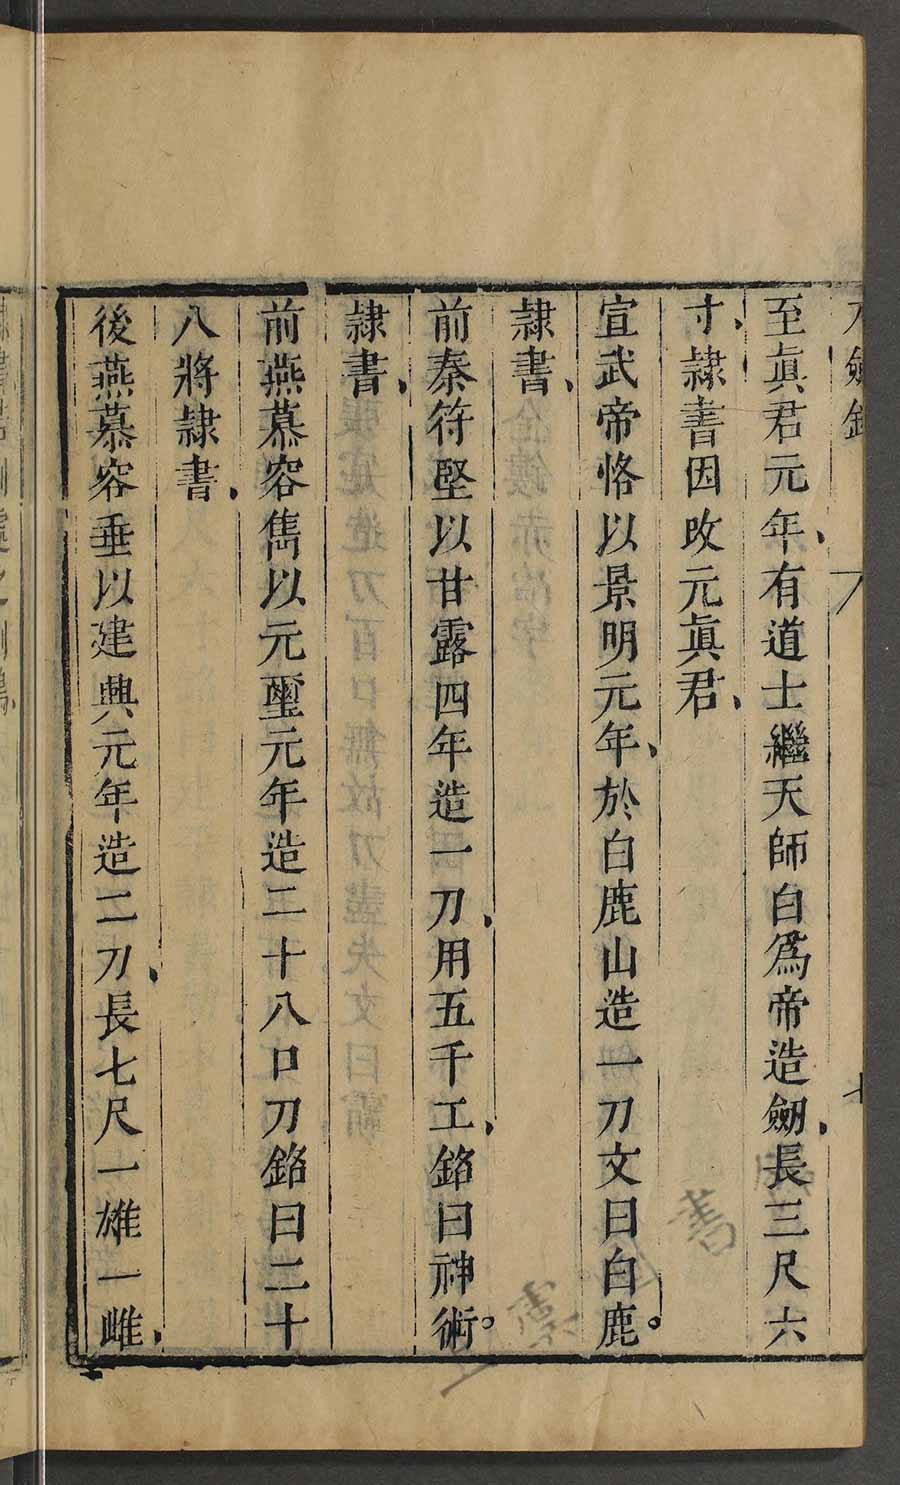 劍錄
至眞君元年、有道士繼天師白爲帝造劒、長三尺六
寸、隷書因改元眞君、
宣武帝恪以景明元年、於白鹿山造一刀文曰白鹿。
隷書、
前秦符堅以甘露四年造一刀、用五千工、銘曰神術。
隷書、
前燕慕容雋以元璽元年造二十八口刀銘曰二十
八將隷書、
後燕慕容垂以建興元年造二刀、長七尺一雄一雌、